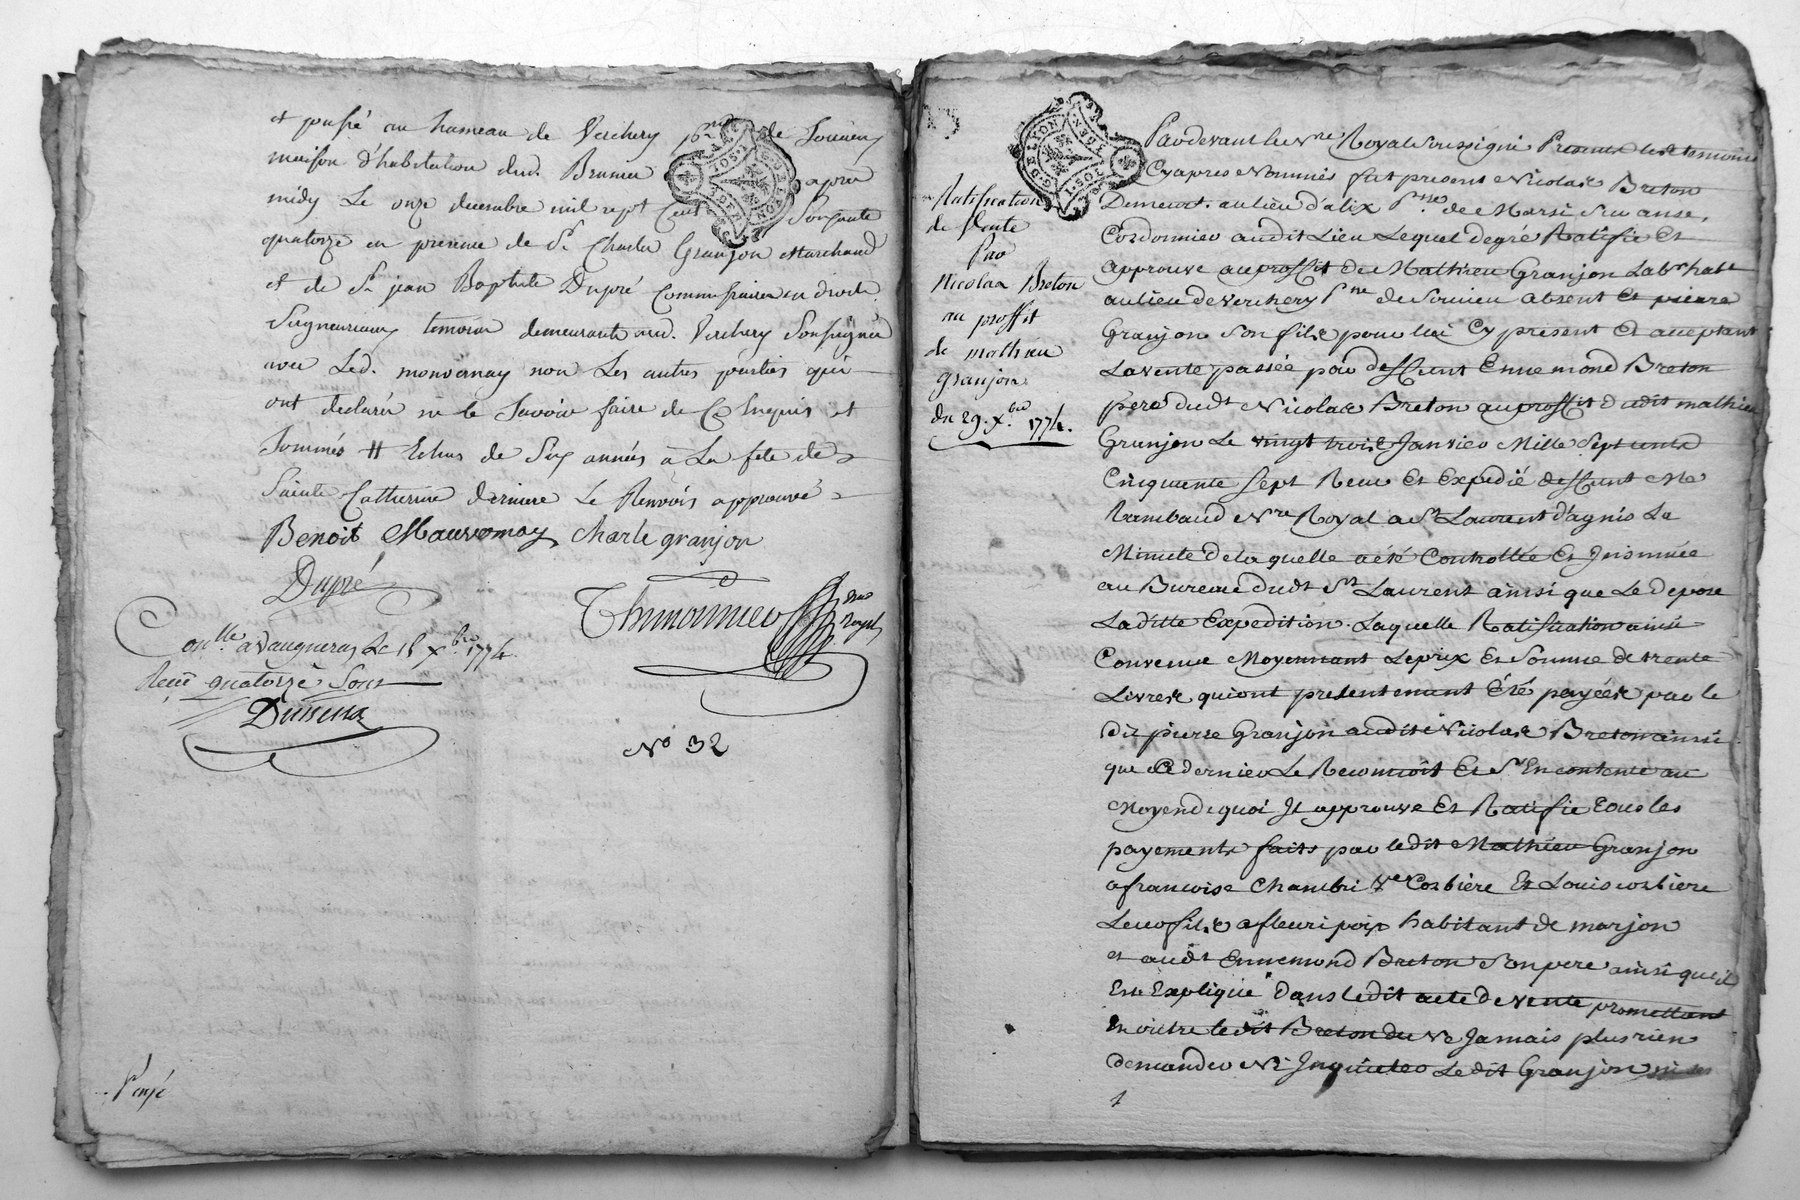 et passé au hameau de Verchery psse de Soucieu
maison d'habitation dud. Brunier apres
midy Le onze decembre mil sept Cent Soixante
quatorze en presence de Sr Charles Granjon Marchand
et de Sr jean Baptiste Dupré Commissaire en droits
Seigneuriaux temoins demeurants aud. Verchery Soussignés
avec Led. monvernay non Les autres parties qui
ont declarés ne le Savoir faire de Ce Enquis et
Sommés # Echus de Six années à La fete de
Sainte Catherine derniere Le Renvois approuvé
Benoit Mauvernay charle granjon
Dupré
Thimonnier nre royal
Conlle. a Vaugneray Le 18 xbre. 1774.
Receu quatorze Sous
N° 32
G. DE LYON
1. SOL
G. DE LYON
1. SOL
Ratification
de Vente
Par
Nicolas Breton
au proffit
de mathieu
granjon
du 29. xbre. 1774.
Pardevant le Nre Royal soussigné Presents les temoins
Cy apres Nommés fut present Nicolas Breton
Demeurt. au lieu d'alix psse de Marsi sur anse,
Cordonnier audit Lieu Lequel de gré Ratifie Et
approuve au proffit de Mathieu Granjon Labr habt
au lieu de Verchery psse de Soucieu absent Et pierre
Granjon Son fils pour lui Cy present Et acceptant
La vente passée par deffunt Ennemond Breton
pere dudt Nicolas Breton au proffit dudit mathieu
Granjon Le vingt trois Janvier Mille Sept cents
Cinquante Sept Receu Et Expedié deffunt Me
Rambaud Nre Royal a St Laurent d'agnis La
Minute de la quelle a été Controllée Et Insinuée
au Bureau dudt St Laurent ainsi que Le depose
La ditte Expedition. Laquelle Ratification ainsi
Convenue Moyennant Le prix Et Somme de trente
Livres qui ont presentement été payées par le
dit pierre Granjon audit Nicolas Breton ainsi
que Ce dernier Le Reconnoit Et S'En contente au
Moyen de quoi Il approuve Et Ratifie tous les
payements faits par ledit Mathieu Granjon
a francoise Chambri Ve Corbiere Et Louis corbiere
Leur fils a fleuri poix habitant de marjon
et audt Ennemond Breton Son pere ainsi qu'il
Est Expliqué Dans ledit acte de vente promettant
En outre ledit Breton de Ne Jamais plus rien
demander Ni Inquieter Le dit Granjon